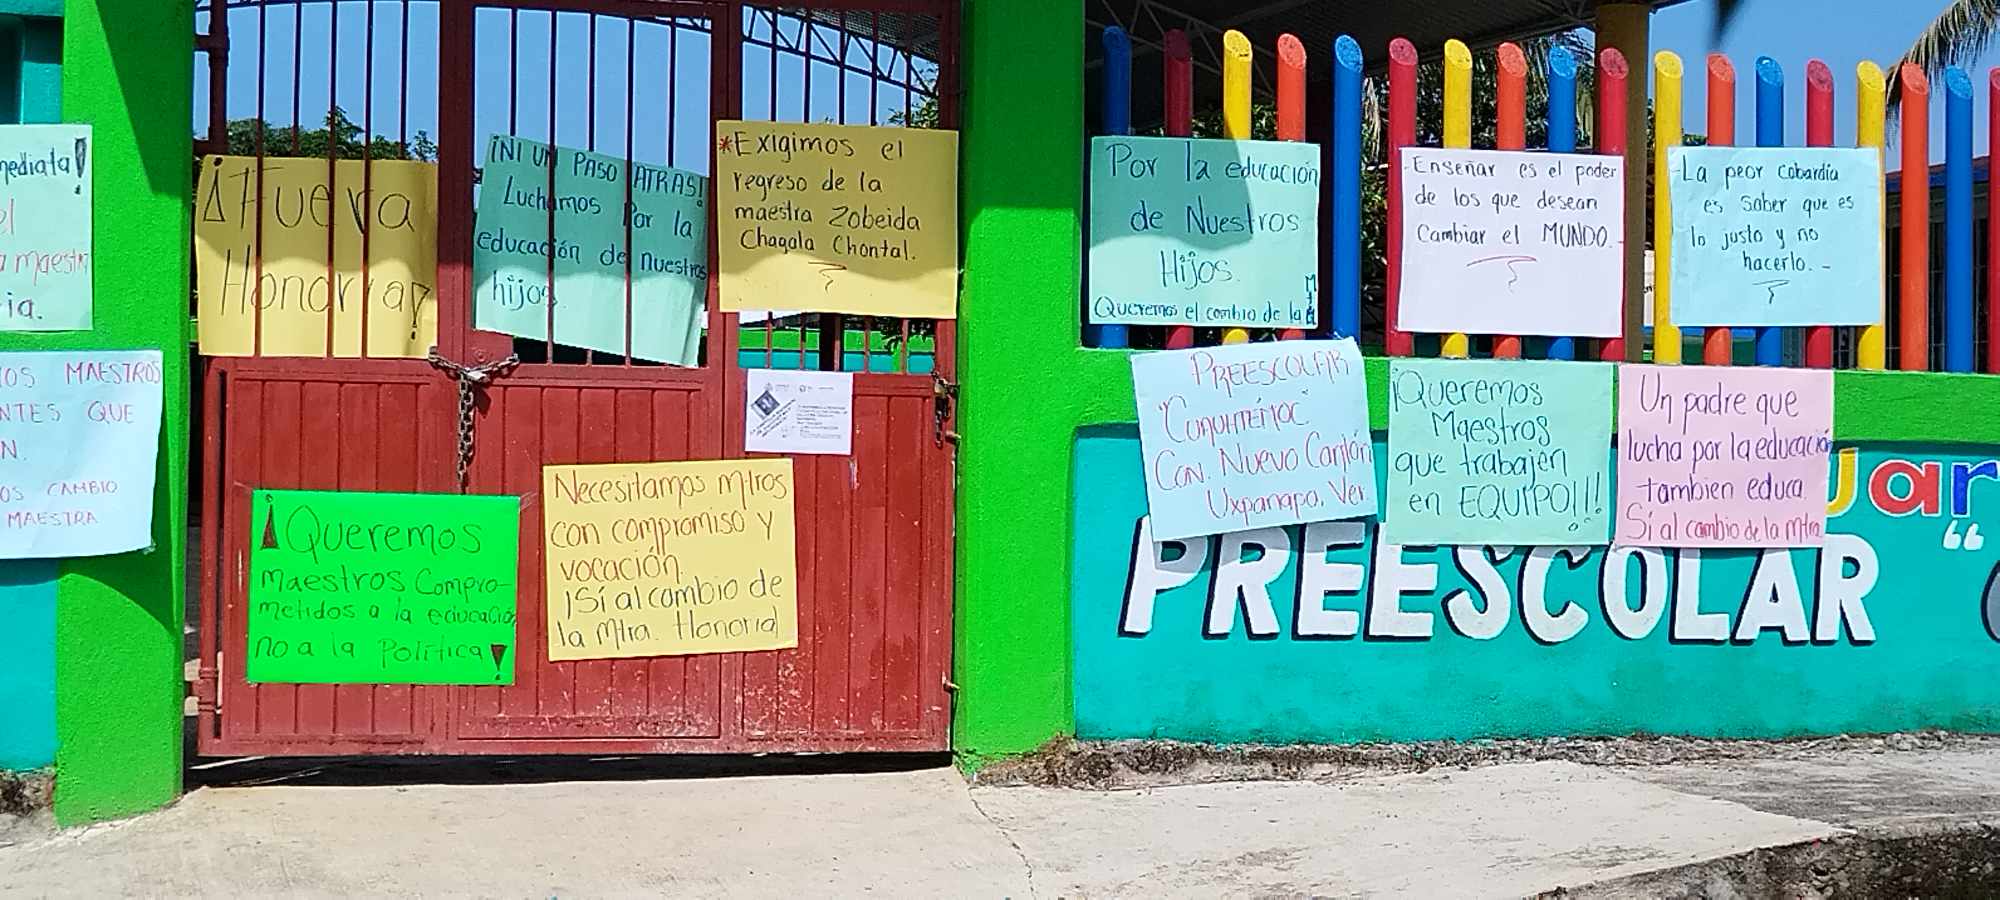 mediata!
el
a maestra
ia.
IOS MAESTROS
NTES QUE
N.
OS CAMBIO
MAESTRA
¡Fuera
Honoria!
¡NI UN PASO ATRAS!
Luchamos Por la
educación de nuestros
hijos.
*Exigimos el
regreso de la
maestra Zobeida
Chagala Chontal.
¡Queremos
maestros Compro-
metidos a la educación
no a la Política!
Necesitamos mtros
con compromiso y
vocación.
¡Sí al cambio de
la Mtra. Honoria!
Por la educación
de Nuestros
Hijos.
Queremos el cambio de la
-Enseñar es el poder
de los que desean
Cambiar el MUNDO.-
-La peor cobardía
es saber que es
lo justo y no
hacerlo.-
PREESCOLAR
"CUAUHTÉMOC"
Con. Nuevo Cantón
Uxpanapa, Ver.
¡Queremos
Maestros
que trabajen
en EQUIPO!!!
Un padre que
lucha por la educación
tambien educa.
Sí al cambio de la Mtra.
uar
PREESCOLAR "